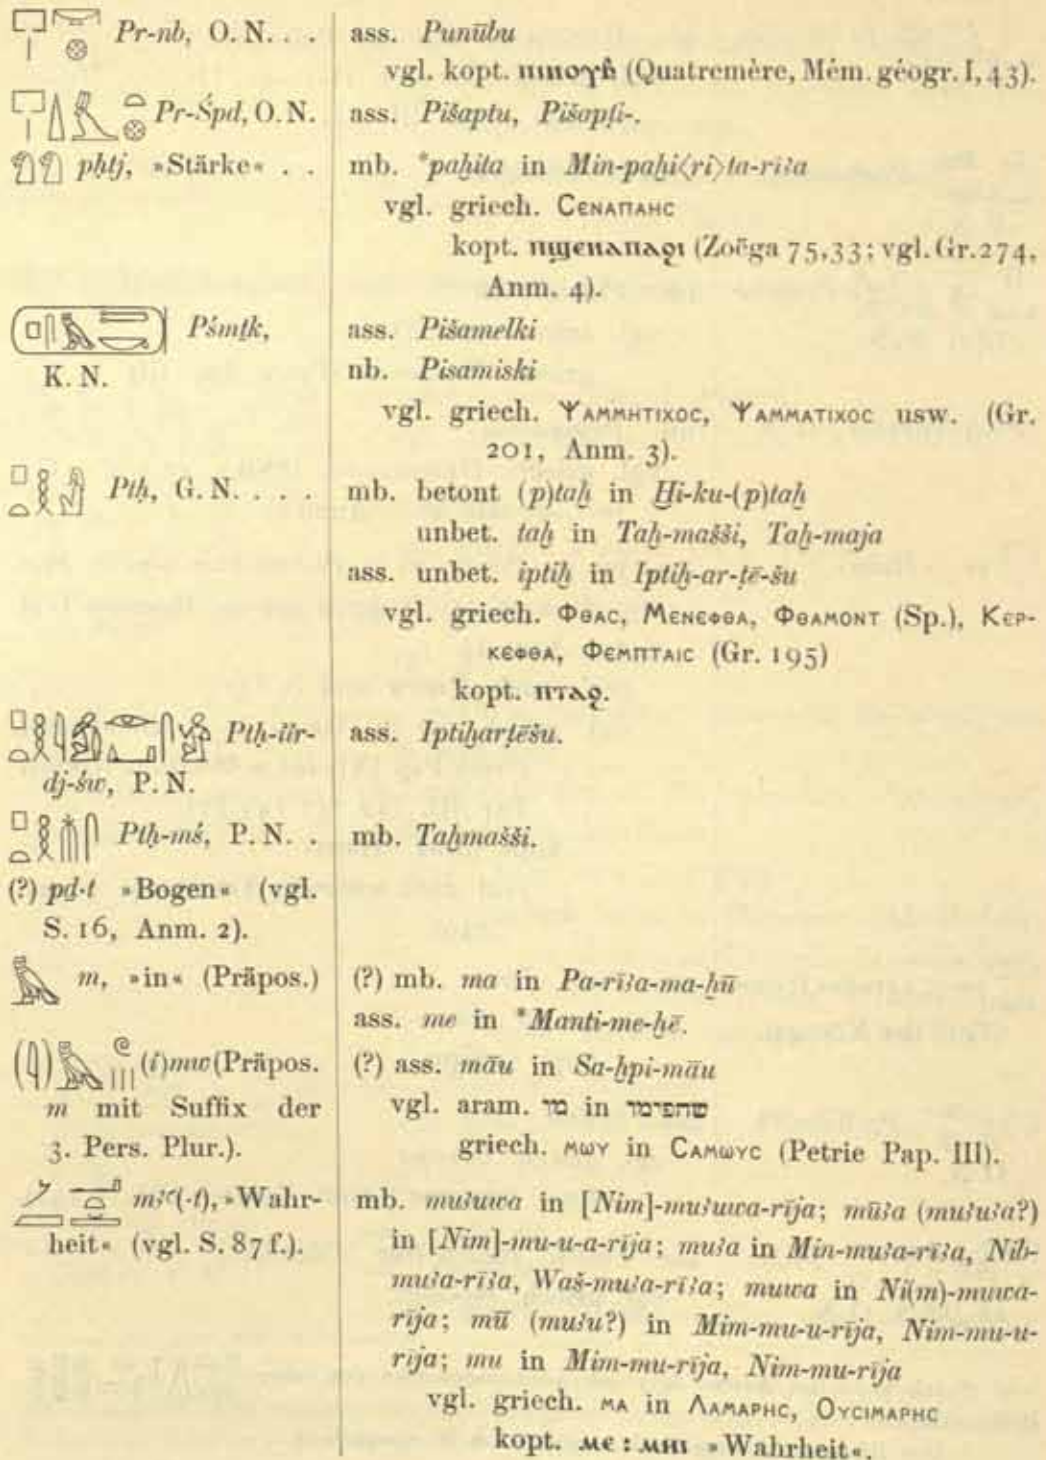 Pr-nb, O. N. . . ass. Punūbu
vgl. kopt. ⲡⲓⲛⲟⲩⲃ̄ (Quatremère, Mém. géogr. I, 43).
Pr-Śpd, O. N. ass. Pišaptu, Pišapṭi-.
pḥtj, »Stärke« . . mb. *paḫita in Min-paḫi⟨ri⟩ta-rīʾa
vgl. griech. Ϲⲉⲛⲁⲡⲁⲏⲥ
kopt. ⲡϣⲉⲛⲁⲡⲁϩⲓ (Zoëga 75,33; vgl. Gr. 274,
Anm. 4).
Pśmṯk, ass. Pišamelki
K. N. nb. Pisamiski
vgl. griech. Ψαμμητιχος, Ψαμματιχος usw. (Gr.
201, Anm. 3).
Ptḥ, G. N. . . . . mb. betont (p)taḫ in Ḫi-ku-(p)taḫ
unbet. taḫ in Taḫ-mašši, Taḫ-maja
ass. unbet. iptiḫ in Iptiḫ-ar-ṭē-šu
vgl. griech. Φθας, Μενεφθα, Φθαμοντ (Sp.), Κερ-
κεφθα, Φεμπταις (Gr. 195)
kopt. ⲡⲧⲁϩ.
Ptḥ-iir- ass. Iptiḫarṭēšu.
dj-św, P. N.
Ptḥ-mś, P. N. . mb. Taḫmašši.
(?) pḏ·t »Bogen« (vgl.
S. 16, Anm. 2).
m, »in« (Präpos.) (?) mb. ma in Pa-rīʾa-ma-ḫū
ass. me in *Manti-me-ḫē.
(i)mw (Präpos. (?) ass. māu in Sa-ḫpi-māu
m mit Suffix der vgl. aram. מו in שחפימו
3. Pers. Plur.). griech. μωυ in Σαμωυς (Petrie Pap. III).
mꜣꜥ(·t), »Wahr- mb. muʾuwa in [Nim]-muʾuwa-rīja; mūʾa (muʾuʾa?)
heit« (vgl. S. 87 f.). in [Nim]-mu-u-a-rīja; muʾa in Min-muʾa-rīʾa, Nib-
muʾa-rīʾa, Waš-muʾa-rīʾa; muwa in Ni(m)-muwa-
rīja; mū (muʾu?) in Mim-mu-u-rīja, Nim-mu-u-
rīja; mu in Mim-mu-rīja, Nim-mu-rīja
vgl. griech. μα in Λαμαρης, Ουσιμαρης
kopt. ⲙⲉ : ⲙⲏⲓ »Wahrheit«.